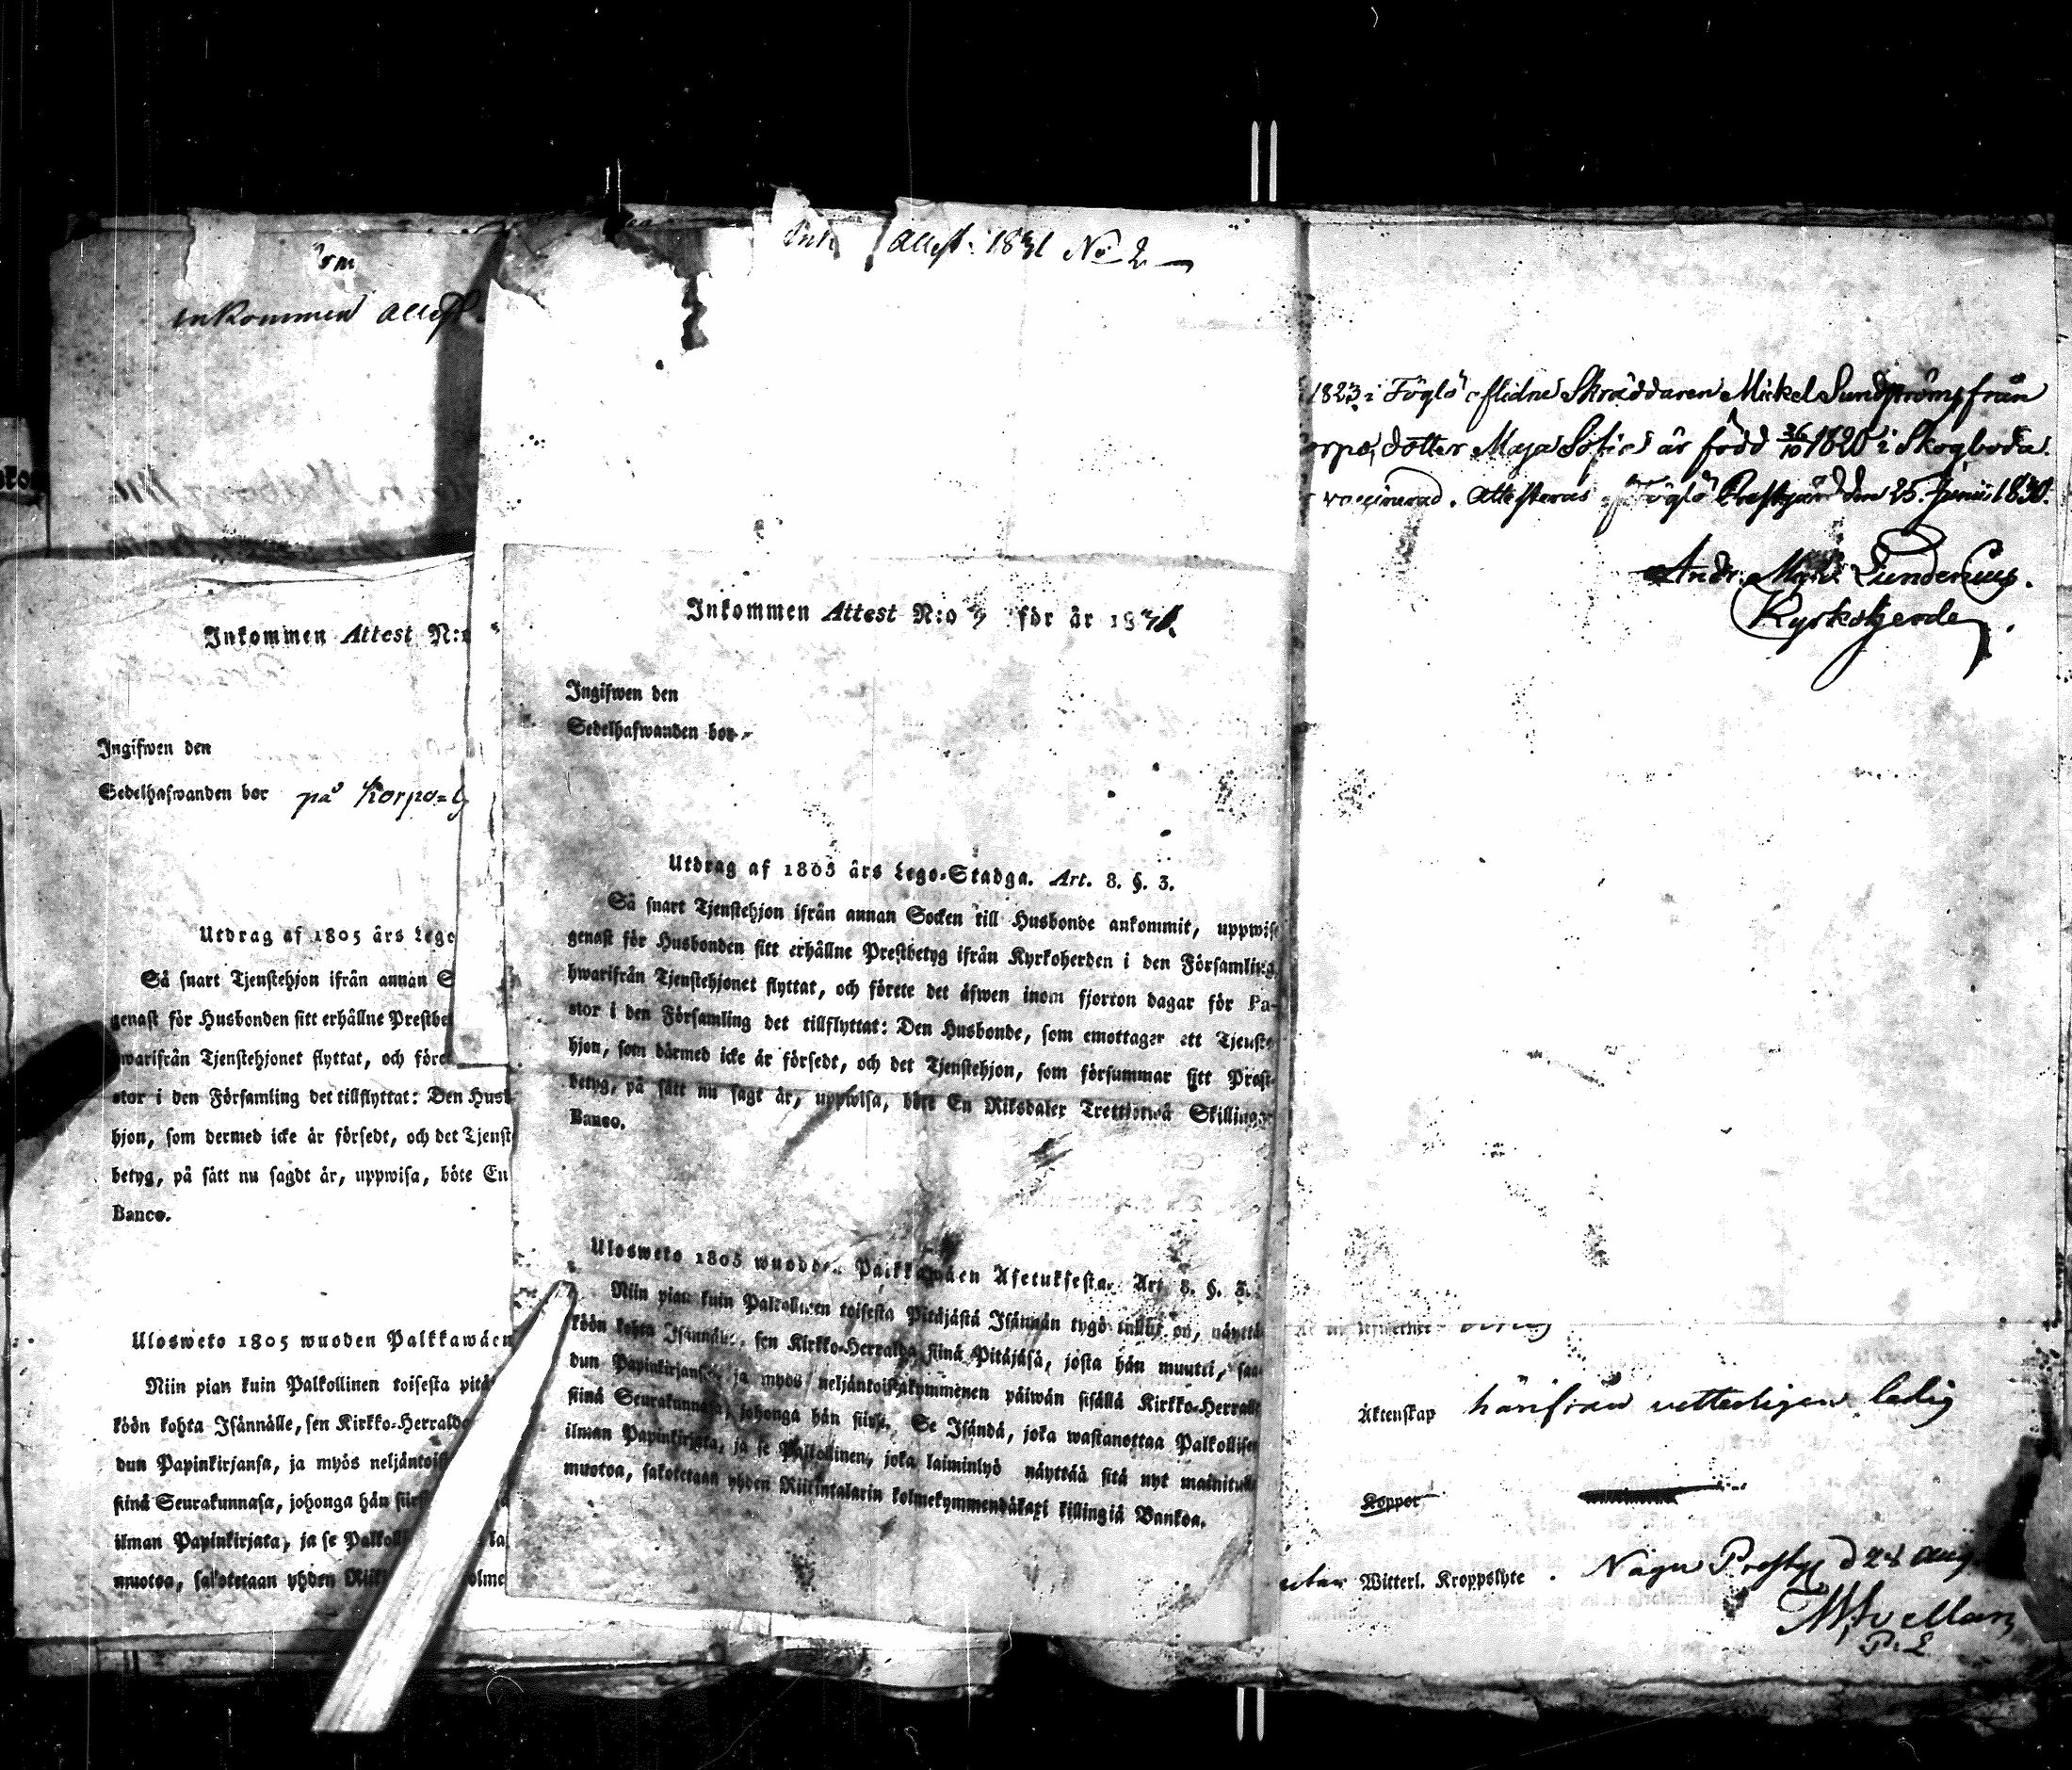 inkommen attest
Inkommen Attest N:o
Ingifwen den
Sedelhafwanden bor på Korpo=
Utdrag af 1805 års Lego
Så snart Tjenstehjon ifrån annan S
genast för Husbonden sitt erhållne Prestbe
hwarifrån Tjenstehjonet flyttat, och före
stor i den Församling det tillflyttat: Den Husb
hjon, som dermed icke är försedt, och det Tjenst
betyg, på sätt nu sagdt är, uppwisa, böte En
Banco.
Ulosweto 1805 wuoden Palkkawäen
Niin pian kuin Palkollinen toisesta pitä
köön kohta Isännälle, sen Kirkko-Herralda
dun Papinkirjansa, ja myös neljäntois
siinä Seurakunnasa, johonga hän siirt
ilman Papinkirjata, ja se Palkol
muotoa, sakotetaan yhden Riiki olme
Ink attest 1831 No 2
Inkommen Attest N:o för år 18
Ingifwen den
Sedelhafwanden bor
Utdrag af 1805 års Lego-Stadga. Art. 8. §. 3.
Så snart Tjenstehjon ifrån annan Socken till Husbonde ankommit, uppwise
genast för Husbonden sitt erhållne Prestbetyg ifrån Kyrkoherden i den Församling,
hwarifrån Tjenstehjonet flyttat, och förete det äfwen inom fjorton dagar för Pa-
stor i den Församling det tillflyttat: Den Husbonde, som emottager ett Tjenste-
hjon, som därmed icke är försedt, och det Tjenstehjon, som försummar sitt Prest-
betyg, på sätt nu sagt är, uppwisa, böte En Riksdaler Trettiotwå Skillingar
Banco.
Ulosweto 1805 wuoden Palkkawäen Asetuksesta. Art. 8. §. 3.
Niin pian kuin Palkollinen toisesta Pitäjästä Isännän tygö tullut on, näyttä-
köön kohta Isännälle, sen Kirkko-Herralda siinä Pitäjäsä, josta hän muutti, saa-
dun Papinkirjansa, ja myös neljäntoistakymmenen päiwän sisällä Kirkko-Herralle
siinä Seurakunnasa, johonga hän siirsi. Se Isändä, joka wastanottaa Palkollisen
ilman Papinkirjata, ja se Palkollinen, joka laiminlyö näyttää sitä nyt mainitulla
muotoa, sakotetaan yhden Riikintalarin kolmekymmendäkaxi killingiä Bankoa.
1823 i Föglö aflidne Skräddaren Mickel Sundström från
orpo, dotter Maja Sofia är född 26/10 1820 i Skogboda.
vaccinerad. Attesteras Föglö Prestgård den 25. Junii 1830.
Andr.
Kyrkoherde.
Äktenskap härifrån vetterligen ledig
Koppor
utan Witterl. Kroppslyte. Nagu Prestg d 24 Aug